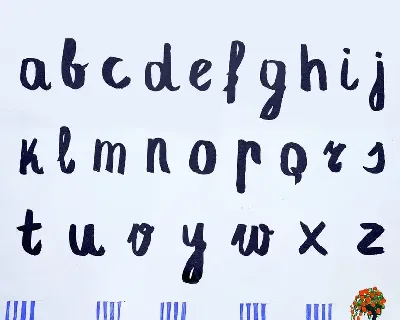 a b c d e f g h i j
k l m n o p Q r s
t u v y w x z